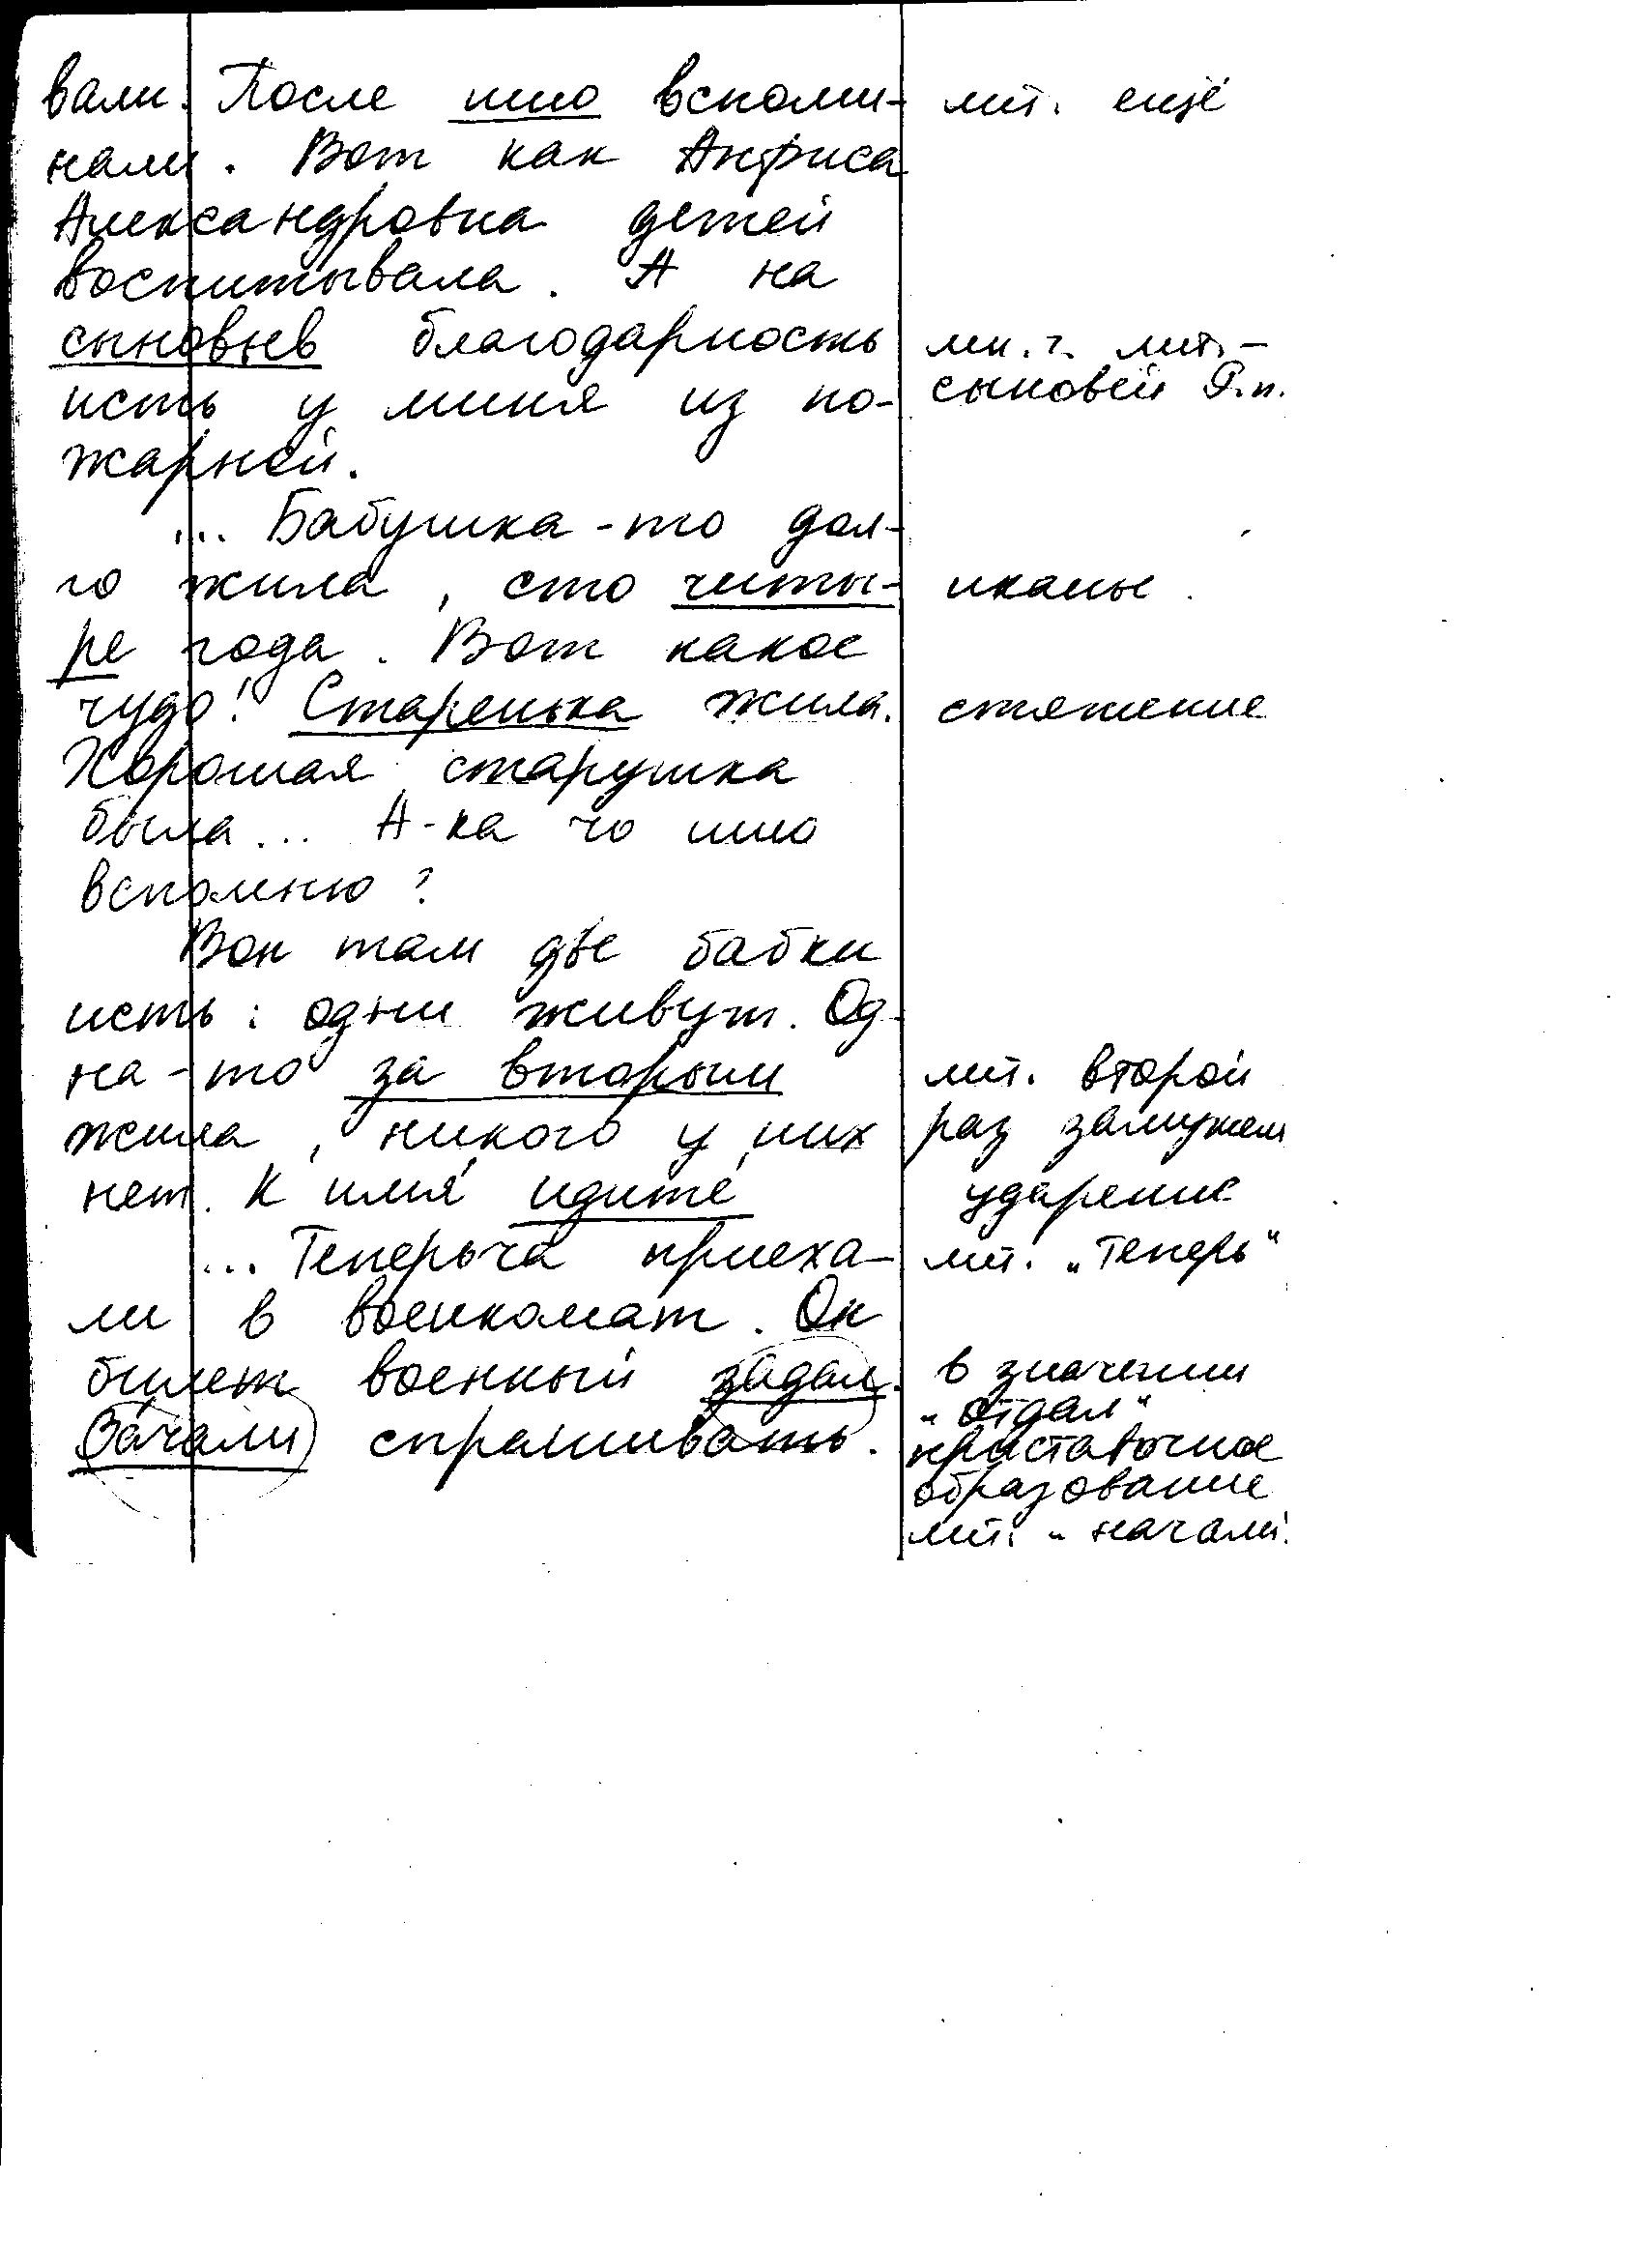 вали. После ишо вспоми- лит. ещё
нали. Вот как Анфиса
Александровна детей
воспитывала. А на
сыновьев благодарность мн.ч. лит. -
исть у миня из по- сыновей Р.п.
жарной.
... Бабушка-то дол-
го жила, сто читы- иканье.
ре года. Вот какое
чудо! Старенька жила. стяжение
Хорошая старушка
была... А-ка чо ишо
вспомню?
Вон там две бабки
исть: одни живут. Од-
на-то за вторым лит. второй
жила, никого у них раз замужем
нет. К имя́ идите́ ударение
... Теперьча приеха- лит. „теперь"
ли в военкомат. Он
билет военный задал. в значении
„отдал"
Зачали спрашивать. приставочное
образование
лит. „начали.